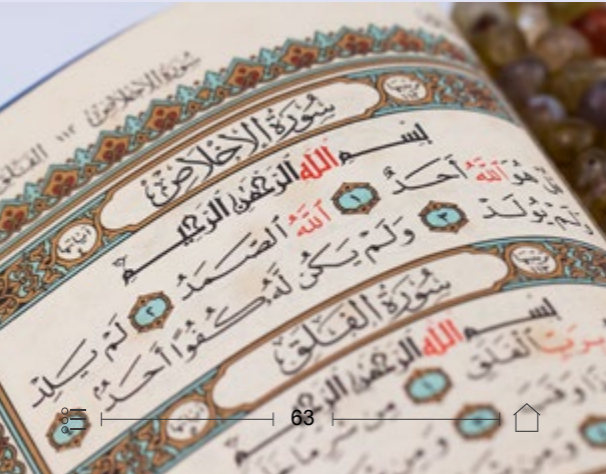 سُورَةُ الإِخْلَاصِ ١١٢ الفلق
سُورَةُ الإِخْلَاصِ
بِسْمِ اللَّهِ الرَّحْمَٰنِ الرَّحِيمِ
قُلْ هُوَ اللَّهُ أَحَدٌ ١ اللَّهُ الصَّمَدُ ٢ لَمْ يَلِدْ
وَلَمْ يُولَدْ ٣ وَلَمْ يَكُن لَّهُ كُفُوًا أَحَدٌ
سُورَةُ الفَلَقِ
بِسْمِ اللَّهِ الرَّحْمَٰنِ الرَّحِيمِ
بِرَبِّ الْفَلَقِ ١ مِن شَرِّ مَا خَلَقَ
63